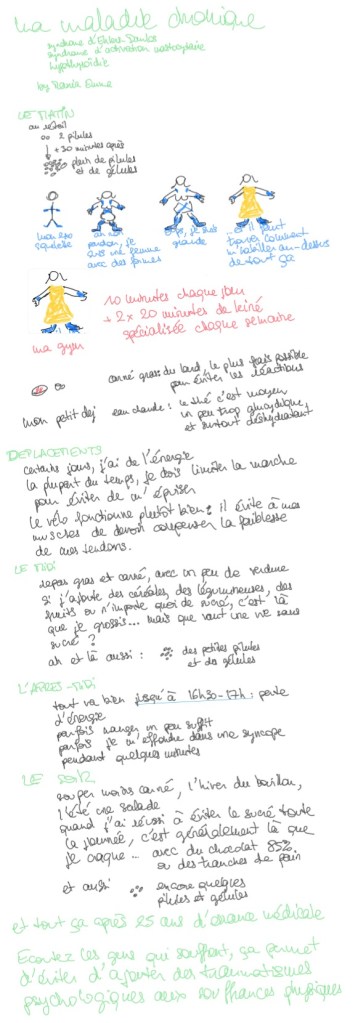 ma maladie chronique
syndrome d'Ehlers-Danlos
syndrome d'activation mastocytaire
hypothyroïdie
by
LE MATIN
au réveil
2 pilules
+30 minutes après
plein de pilules
et de gélules
mon
squelette
ah non
pardon, je
suis une femme
avec des formes
je suis
grande
et il faut
trouver comment
m'habiller au-dessus
de tout ça
ma gym
10 minutes chaque jour
+ 2 x 20 minutes de kiné
spécialisée chaque semaine
mon petit déj
carné gras: du lard, le plus frais possible
pour éviter les réactions
eau chaude: le thé c'est moyen
un peu trop glucidique,
et surtout déshydratant
DEPLACEMENTS
certains jours, j'ai de l'énergie
la plupart du temps, je dois limiter la marche
pour éviter de m'épuiser
le vélo fonctionne plutôt bien: il évite à mes
muscles de devoir compenser la faiblesse
de mes tendons.
LE MIDI
repas gras et carné, avec un peu de verdure
si j'ajoute des céréales, des légumineuses, des
fruits ou n'importe quoi de sucré, c'est là
que je grossis... mais que vaut une vie sans
sucré ?
ah et là aussi : des petites pilules
et des gélules
L'APRES-MIDI
tout va bien jusqu'à 16h30-17h : perte
d'énergie
parfois manger un peu suffit
parfois je m'effondre dans une syncope
pendant quelques minutes
LE SOIR
souper moins carné, l'hiver du bouillon,
l'été une salade
quand j'ai réussi à éviter le sucré toute
la journée, c'est généralement là que
je craque ... avec du chocolat 85%
ou des tranches de pain
et aussi encore quelques
pilules et gélules
et tout ça après 25 ans d'errance médicale
Ecoutez les gens qui souffrent, ça permet
d'éviter d'ajouter des traumatismes
psychologiques aux souffrances physiques